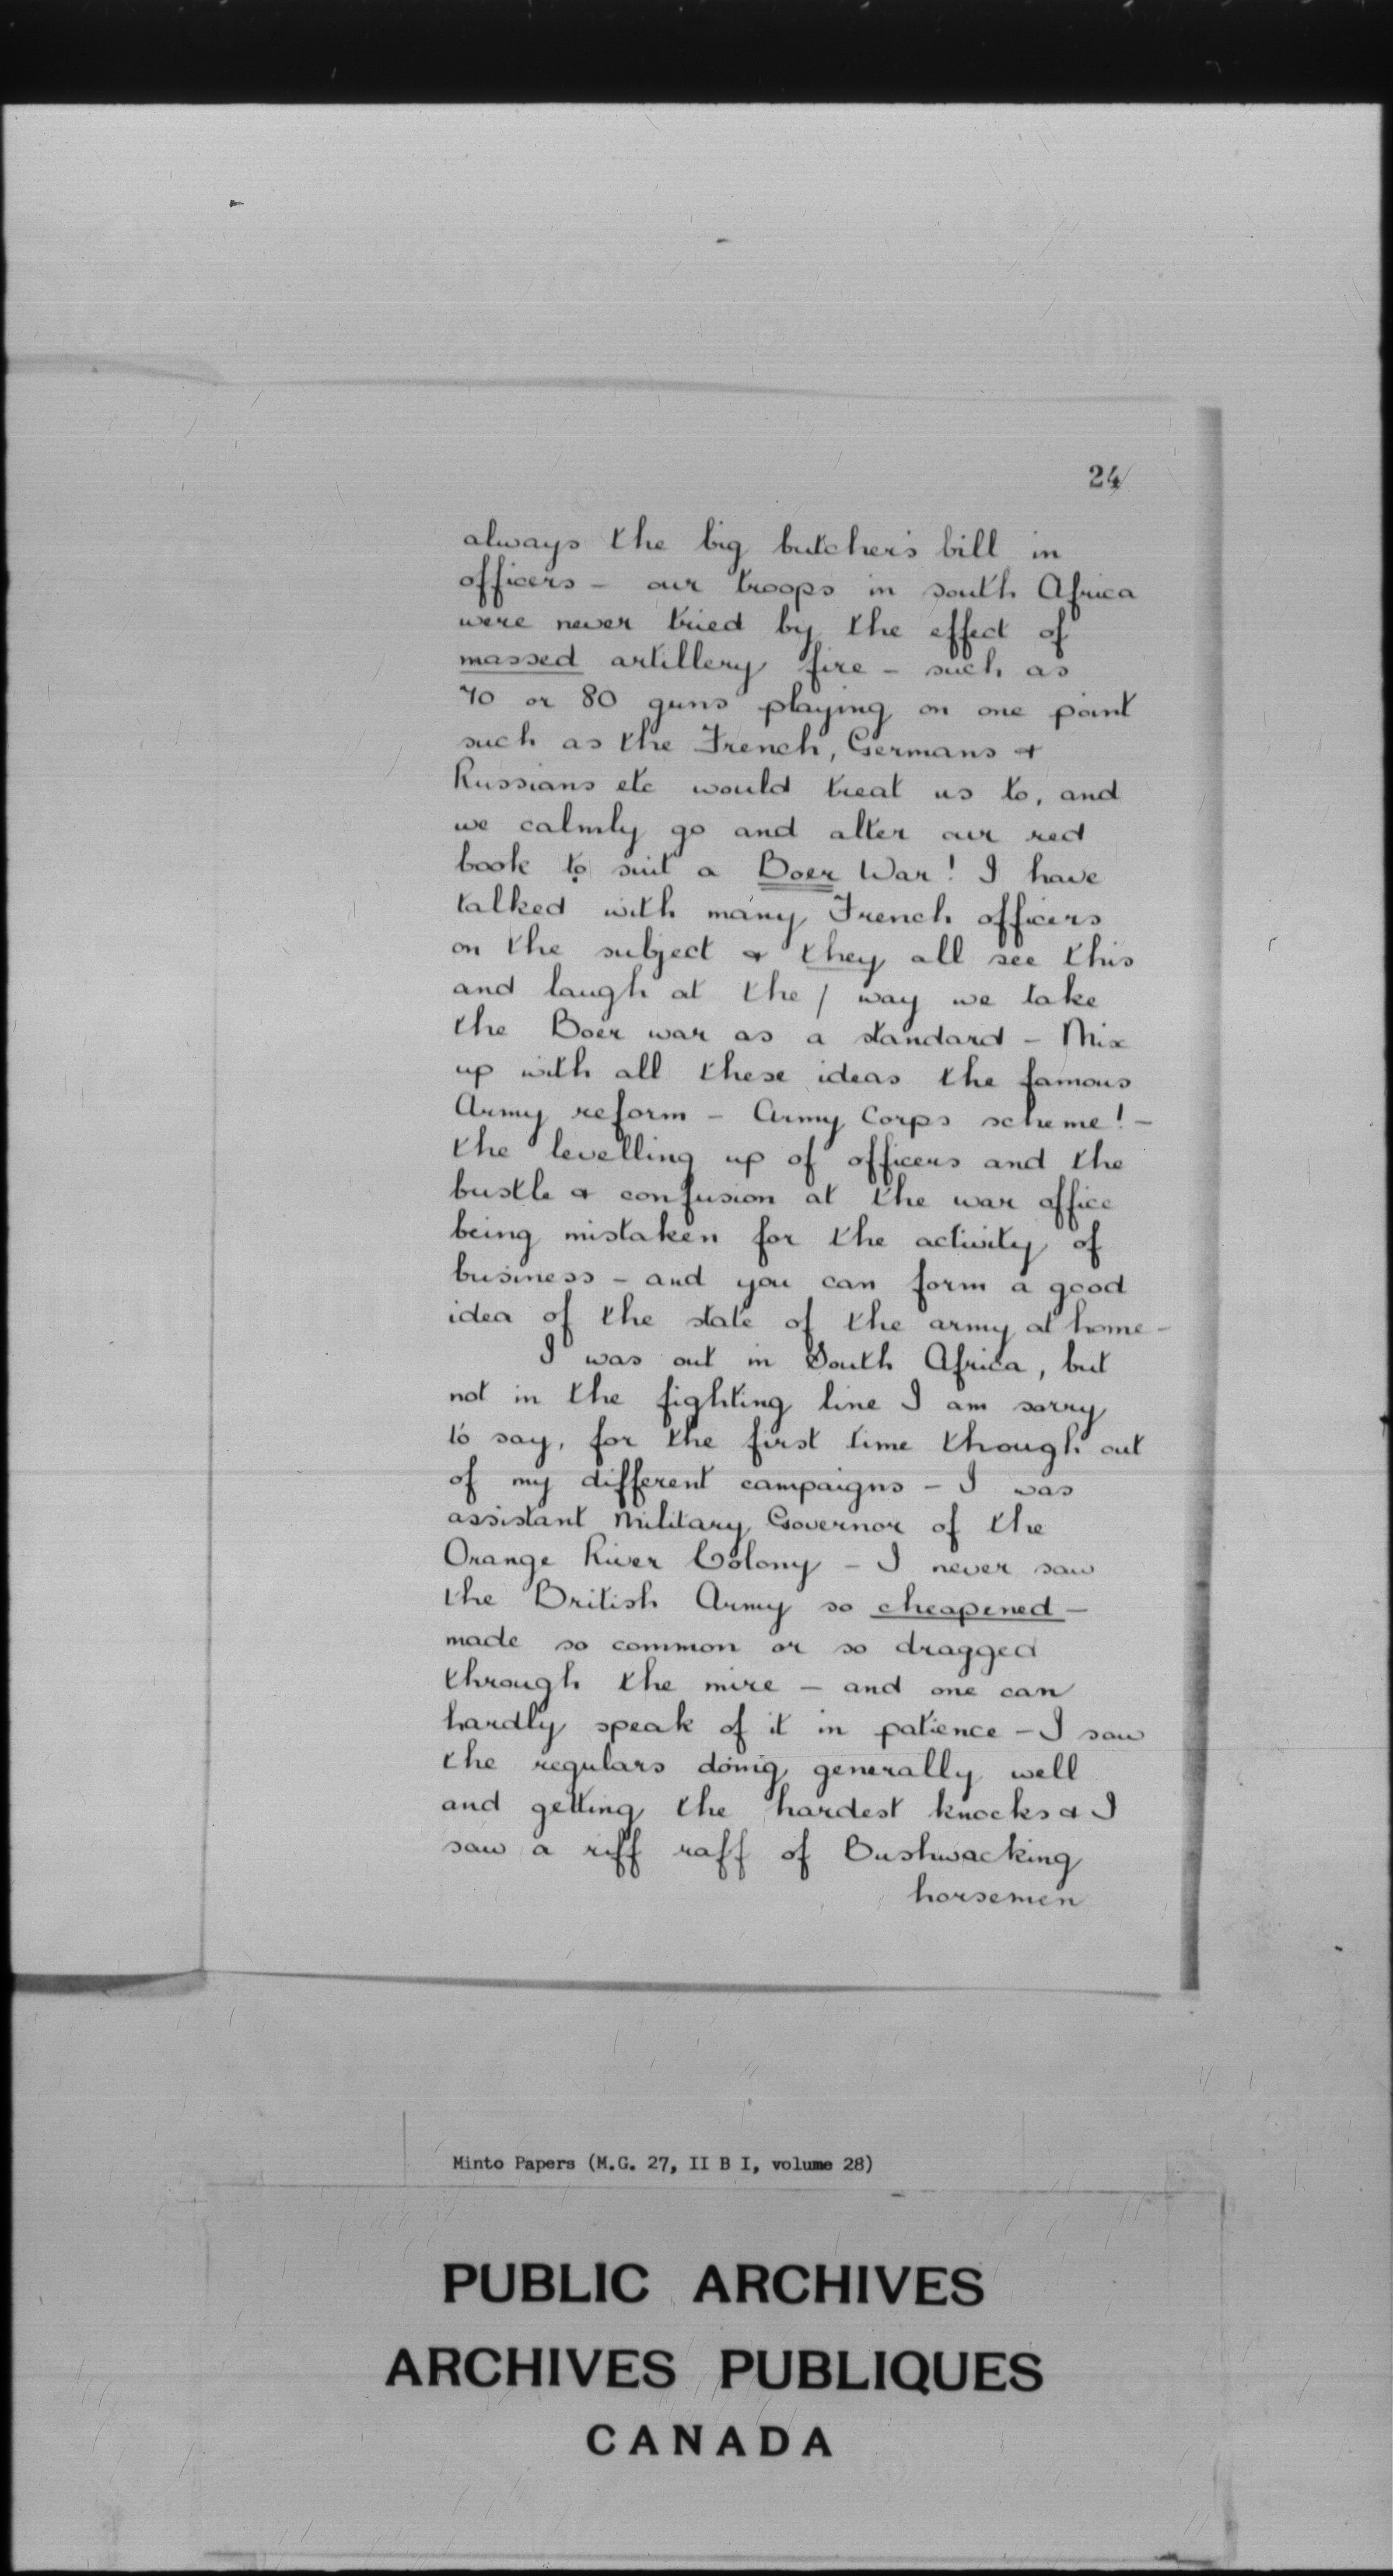 24
always the big butcher's bill in
officers - our troops in south Africa
were never tried by the effect of
massed artillery fire - such as
70 or 80 guns playing on one point
such as the French, Germans &
Russians etc would treat us to, and
we calmly go and alter our red
book to suit a Boer War! I have
talked with many French officers
on the subject & they all see this
and laugh at the / way we take
the Boer war as a standard - Mix
up with all these ideas the famous
Army reform - Army Corps scheme! -
the levelling up of officers and the
bustle & confusion at the war office
being mistaken for the activity of
business - and you can form a good
idea of the state of the army at home -
I was out in South Africa, but
not in the fighting line I am sorry
to say, for the first time though out
of my different campaigns - I was
assistant Military Governor of the
Orange River Colony - I never saw
the British Army so cheapened -
made so common or so dragged
through the mire - and one can
hardly speak of it in patience - I saw
the regulars doing generally well
and getting the hardest knocks & I
saw a riff raff of Bushwacking
horsemen
Minto Papers (M.G. 27, II B I, volume 28)
PUBLIC ARCHIVES
ARCHIVES PUBLIQUES
CANADA